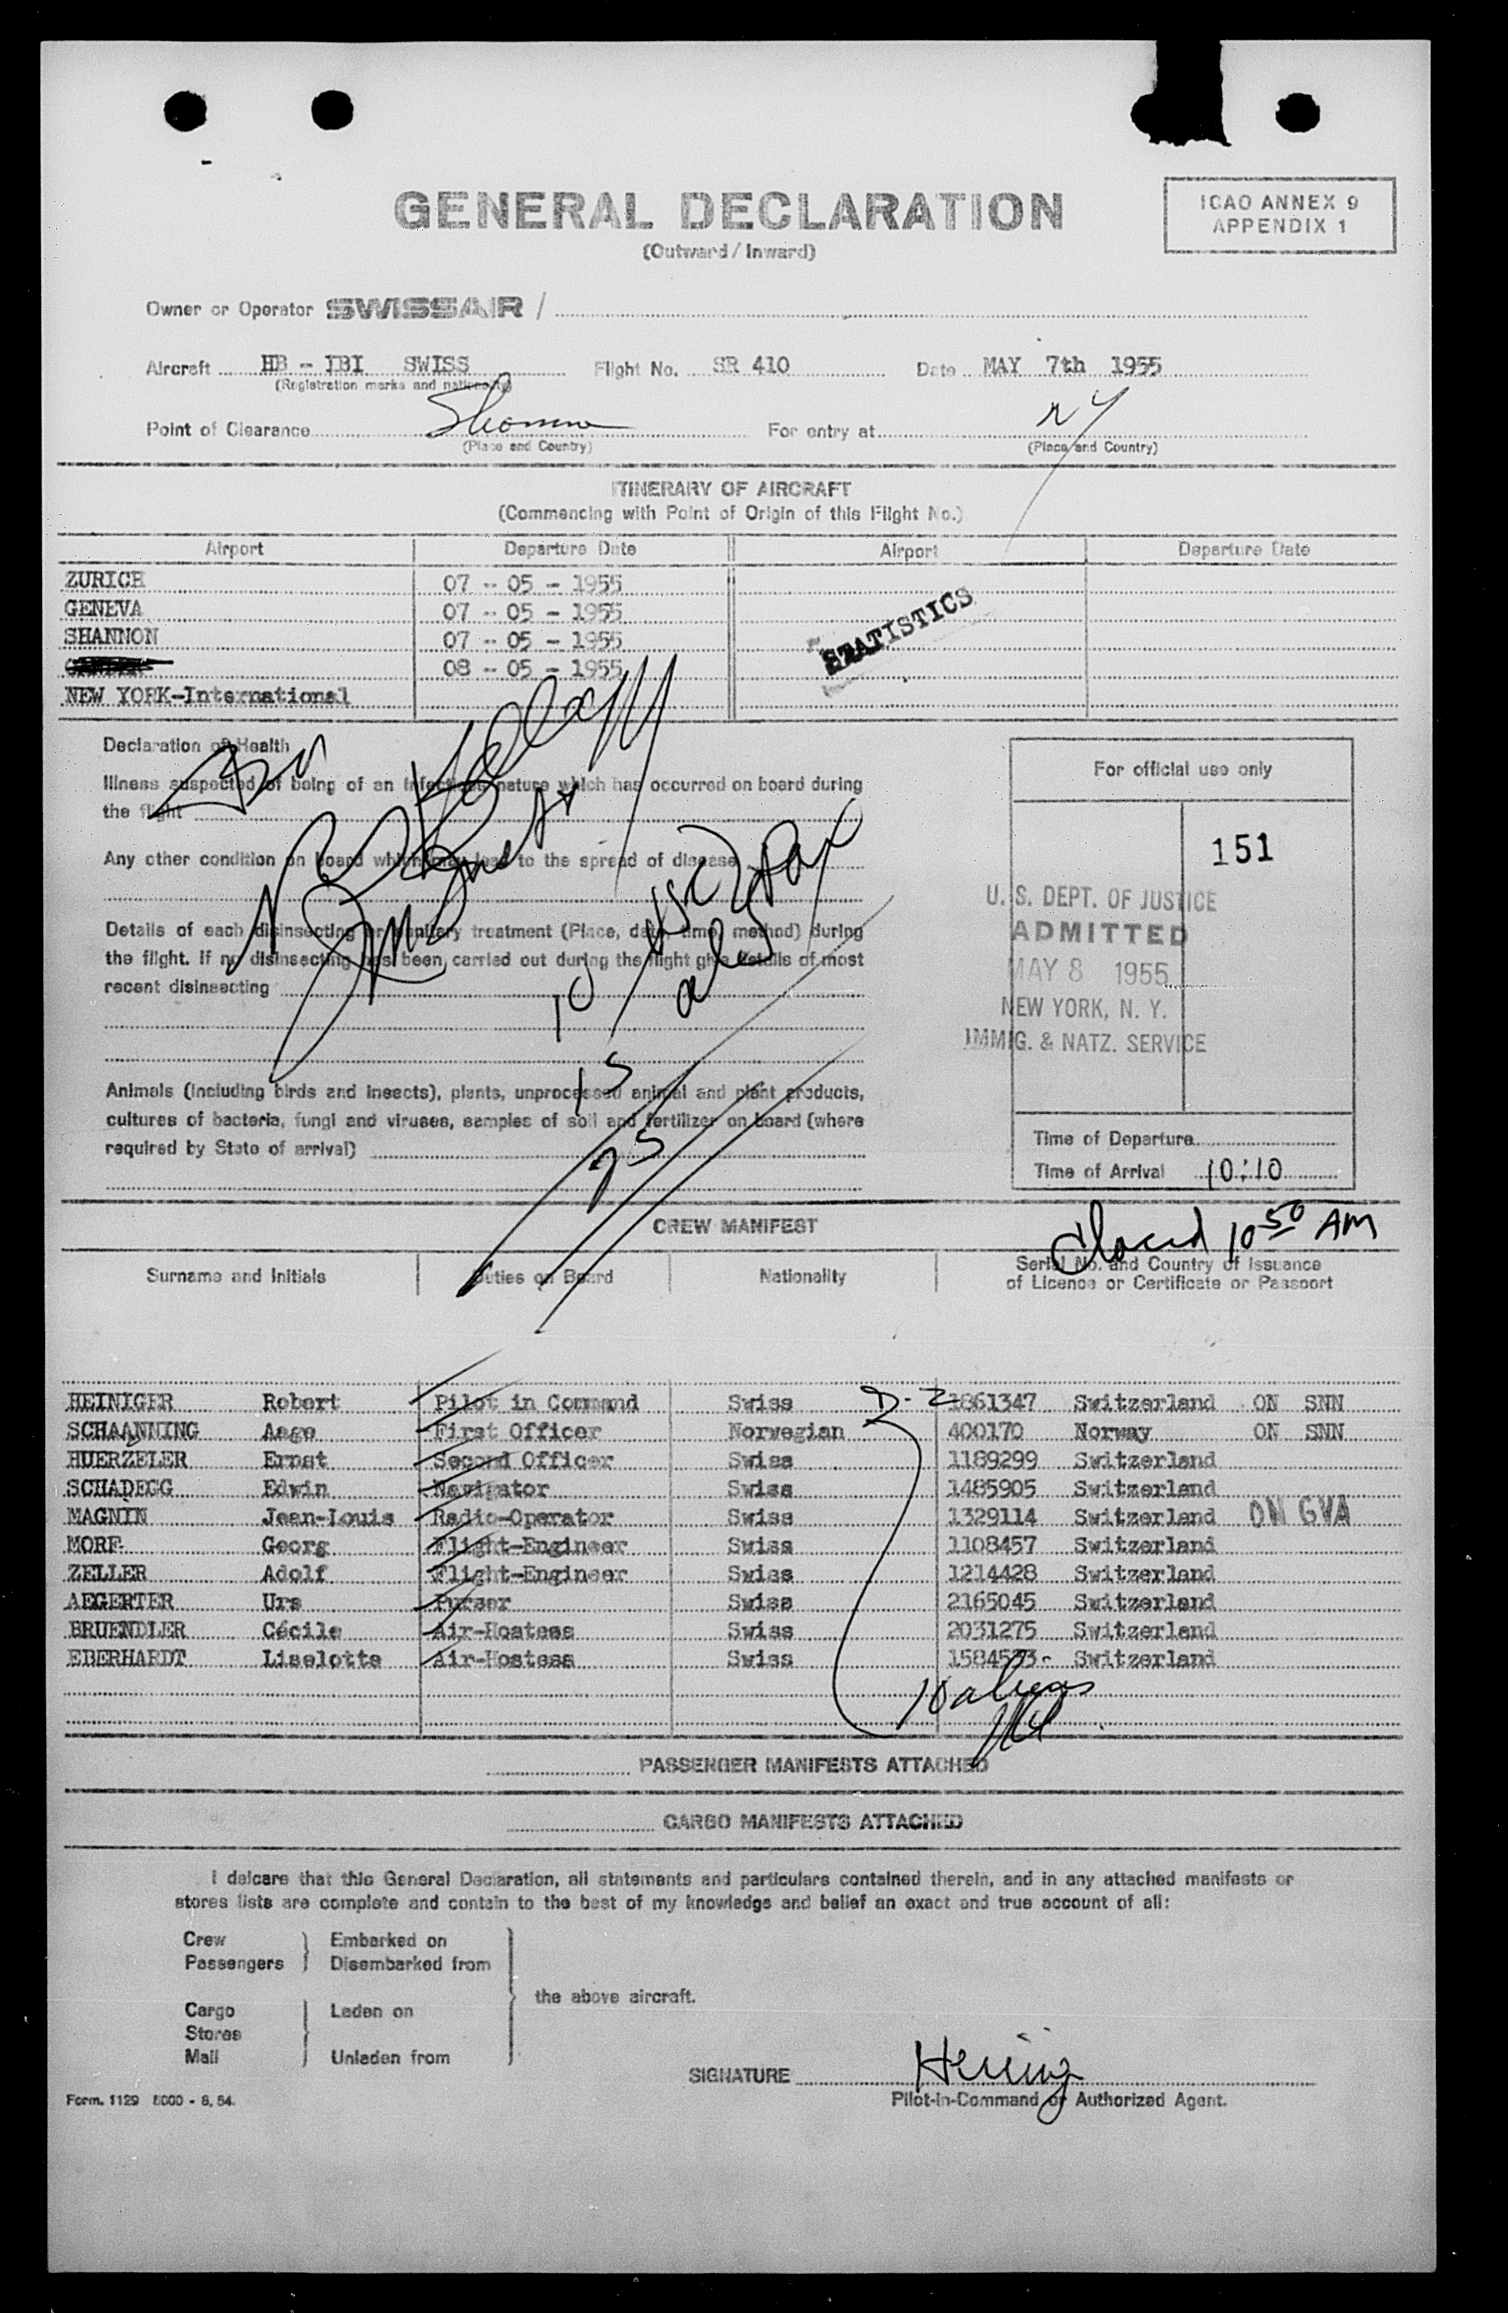 GENERAL DECLARATION
(Outward / Inward)
ICAO ANNEX 9
APPENDIX 1
Owner or Operator SWISSAIR /
Aircraft HB - IBI SWISS Flight No. SR 410 Date MAY 7th 1955
(Registration marks and nationality)
Point of Clearance Shannon For entry at NY
(Place and Country) (Place and Country)
ITINERARY OF AIRCRAFT
(Commencing with Point of Origin of this Flight No.)
Airport Departure Date Airport Departure Date
ZURICH 07 - 05 - 1955
GENEVA 07 - 05 - 1955
SHANNON 07 - 05 - 1955
08 - 05 - 1955
NEW YORK-International
STATISTICS
Declaration of Health
Illness suspected of being of an infectious nature which has occurred on board during
the flight
Any other condition on board which may lead to the spread of disease
Details of each disinsecting or sanitary treatment (Place, date, time, method) during
the flight. If no disinsecting has been carried out during the flight give details of most
recent disinsecting
10
15
25
Animals (including birds and insects), plants, unprocessed animal and plant products,
cultures of bacteria, fungi and viruses, samples of soil and fertilizer on board (where
required by State of arrival)
For official use only
151
U. S. DEPT. OF JUSTICE
ADMITTED
MAY 8 1955
NEW YORK, N. Y.
IMMIG. & NATZ. SERVICE
Time of Departure
Time of Arrival 10:10
closed 10 50 AM
CREW MANIFEST
Surname and Initials Duties on Board Nationality Serial No. and Country of Issuance
of Licence or Certificate or Passport
HEINIGER Robert Pilot in Command Swiss D-2 1861347 Switzerland ON SNN
SCHAANNING Aage First Officer Norwegian 400170 Norway ON SNN
HUERZELER Ernst Second Officer Swiss 1189299 Switzerland
SCHADEGG Edwin Navigator Swiss 1485905 Switzerland
MAGNIN Jean-Louis Radio-Operator Swiss 1329114 Switzerland ON GVA
MORF Georg Flight-Engineer Swiss 1108457 Switzerland
ZELLER Adolf Flight-Engineer Swiss 1214428 Switzerland
AEGERTER Urs Purser Swiss 2165045 Switzerland
BRUENDLER Cécile Air-Hostess Swiss 2031275 Switzerland
EBERHARDT Liselotte Air-Hostess Swiss Switzerland
10 aliens
PASSENGER MANIFESTS ATTACHED
CARGO MANIFESTS ATTACHED
I delcare that this General Declaration, all statements and particulars contained therein, and in any attached manifests or
stores lists are complete and contain to the best of my knowledge and belief an exact and true account of all:
Crew Embarked on
Passengers Disembarked from
the above aircraft.
Cargo Laden on
Stores
Mail Unladen from
SIGNATURE
Pilot-in-Command or Authorized Agent.
Form. 1129 5000 - 8, 54.